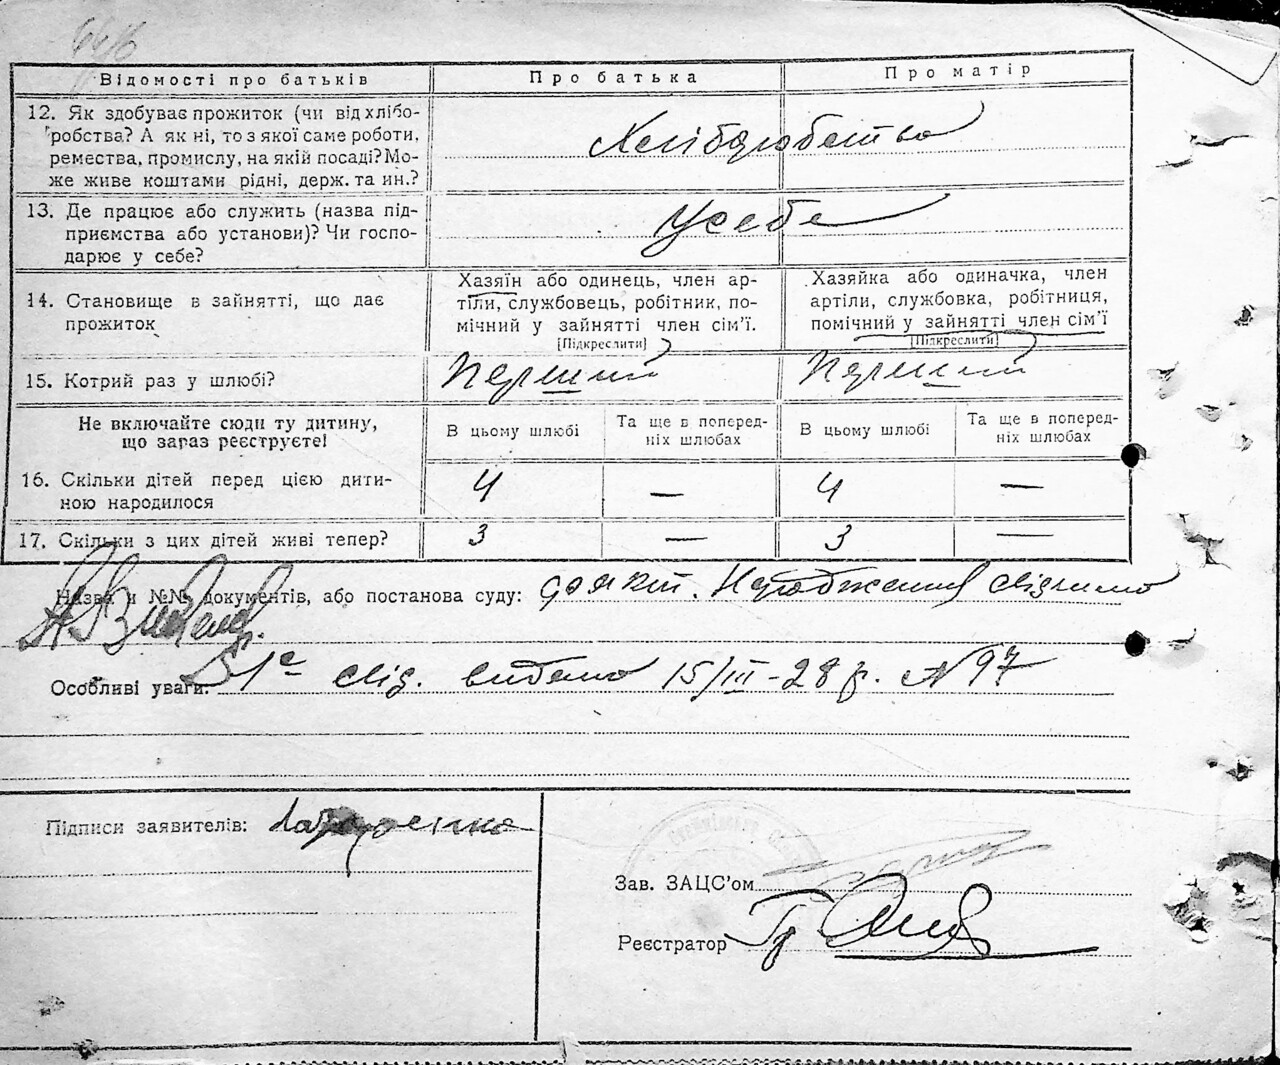 Відомості про батьків
Про батька
Про матір
12. Як здобуває прожиток (чи від хлібо-
робства? А як ні, то з якої саме роботи,
ремества, промислу, на якій посаді? Мо-
же живе коштами рідні, держ. та ин.?
Хліборобство
13. Де працює або служить (назва під-
приємства або установи)? Чи госпо-
дарює у себе?
У себе
14. Становище в зайнятті, що дає
прожиток
Хазяїн або одинець, член ар-
тіли, службовець, робітник, по-
мічний у зайнятті член сім'ї.
[Підкреслити]
Хазяйка або одиначка, член
артіли, службовка, робітниця,
помічний у зайнятті член сім'ї
[Підкреслити]
15. Котрий раз у шлюбі?
Перший
Перший
Не включайте сюди ту дитину,
що зараз реєструєте!
В цьому шлюбі
Та ще в поперед-
ніх шлюбах
В цьому шлюбі
Та ще в поперед-
ніх шлюбах
16. Скільки дітей перед цією дити-
ною народилося
4 — 4 —
17. Скільки з цих дітей живі тепер?
3 — 3 —
Назва и №№ документів, або постанова суду:
Особливі уваги: свід. видано 15/III-28 р. № 97
Підписи заявителів:
Зав. ЗАЦС'ом
Реєстратор